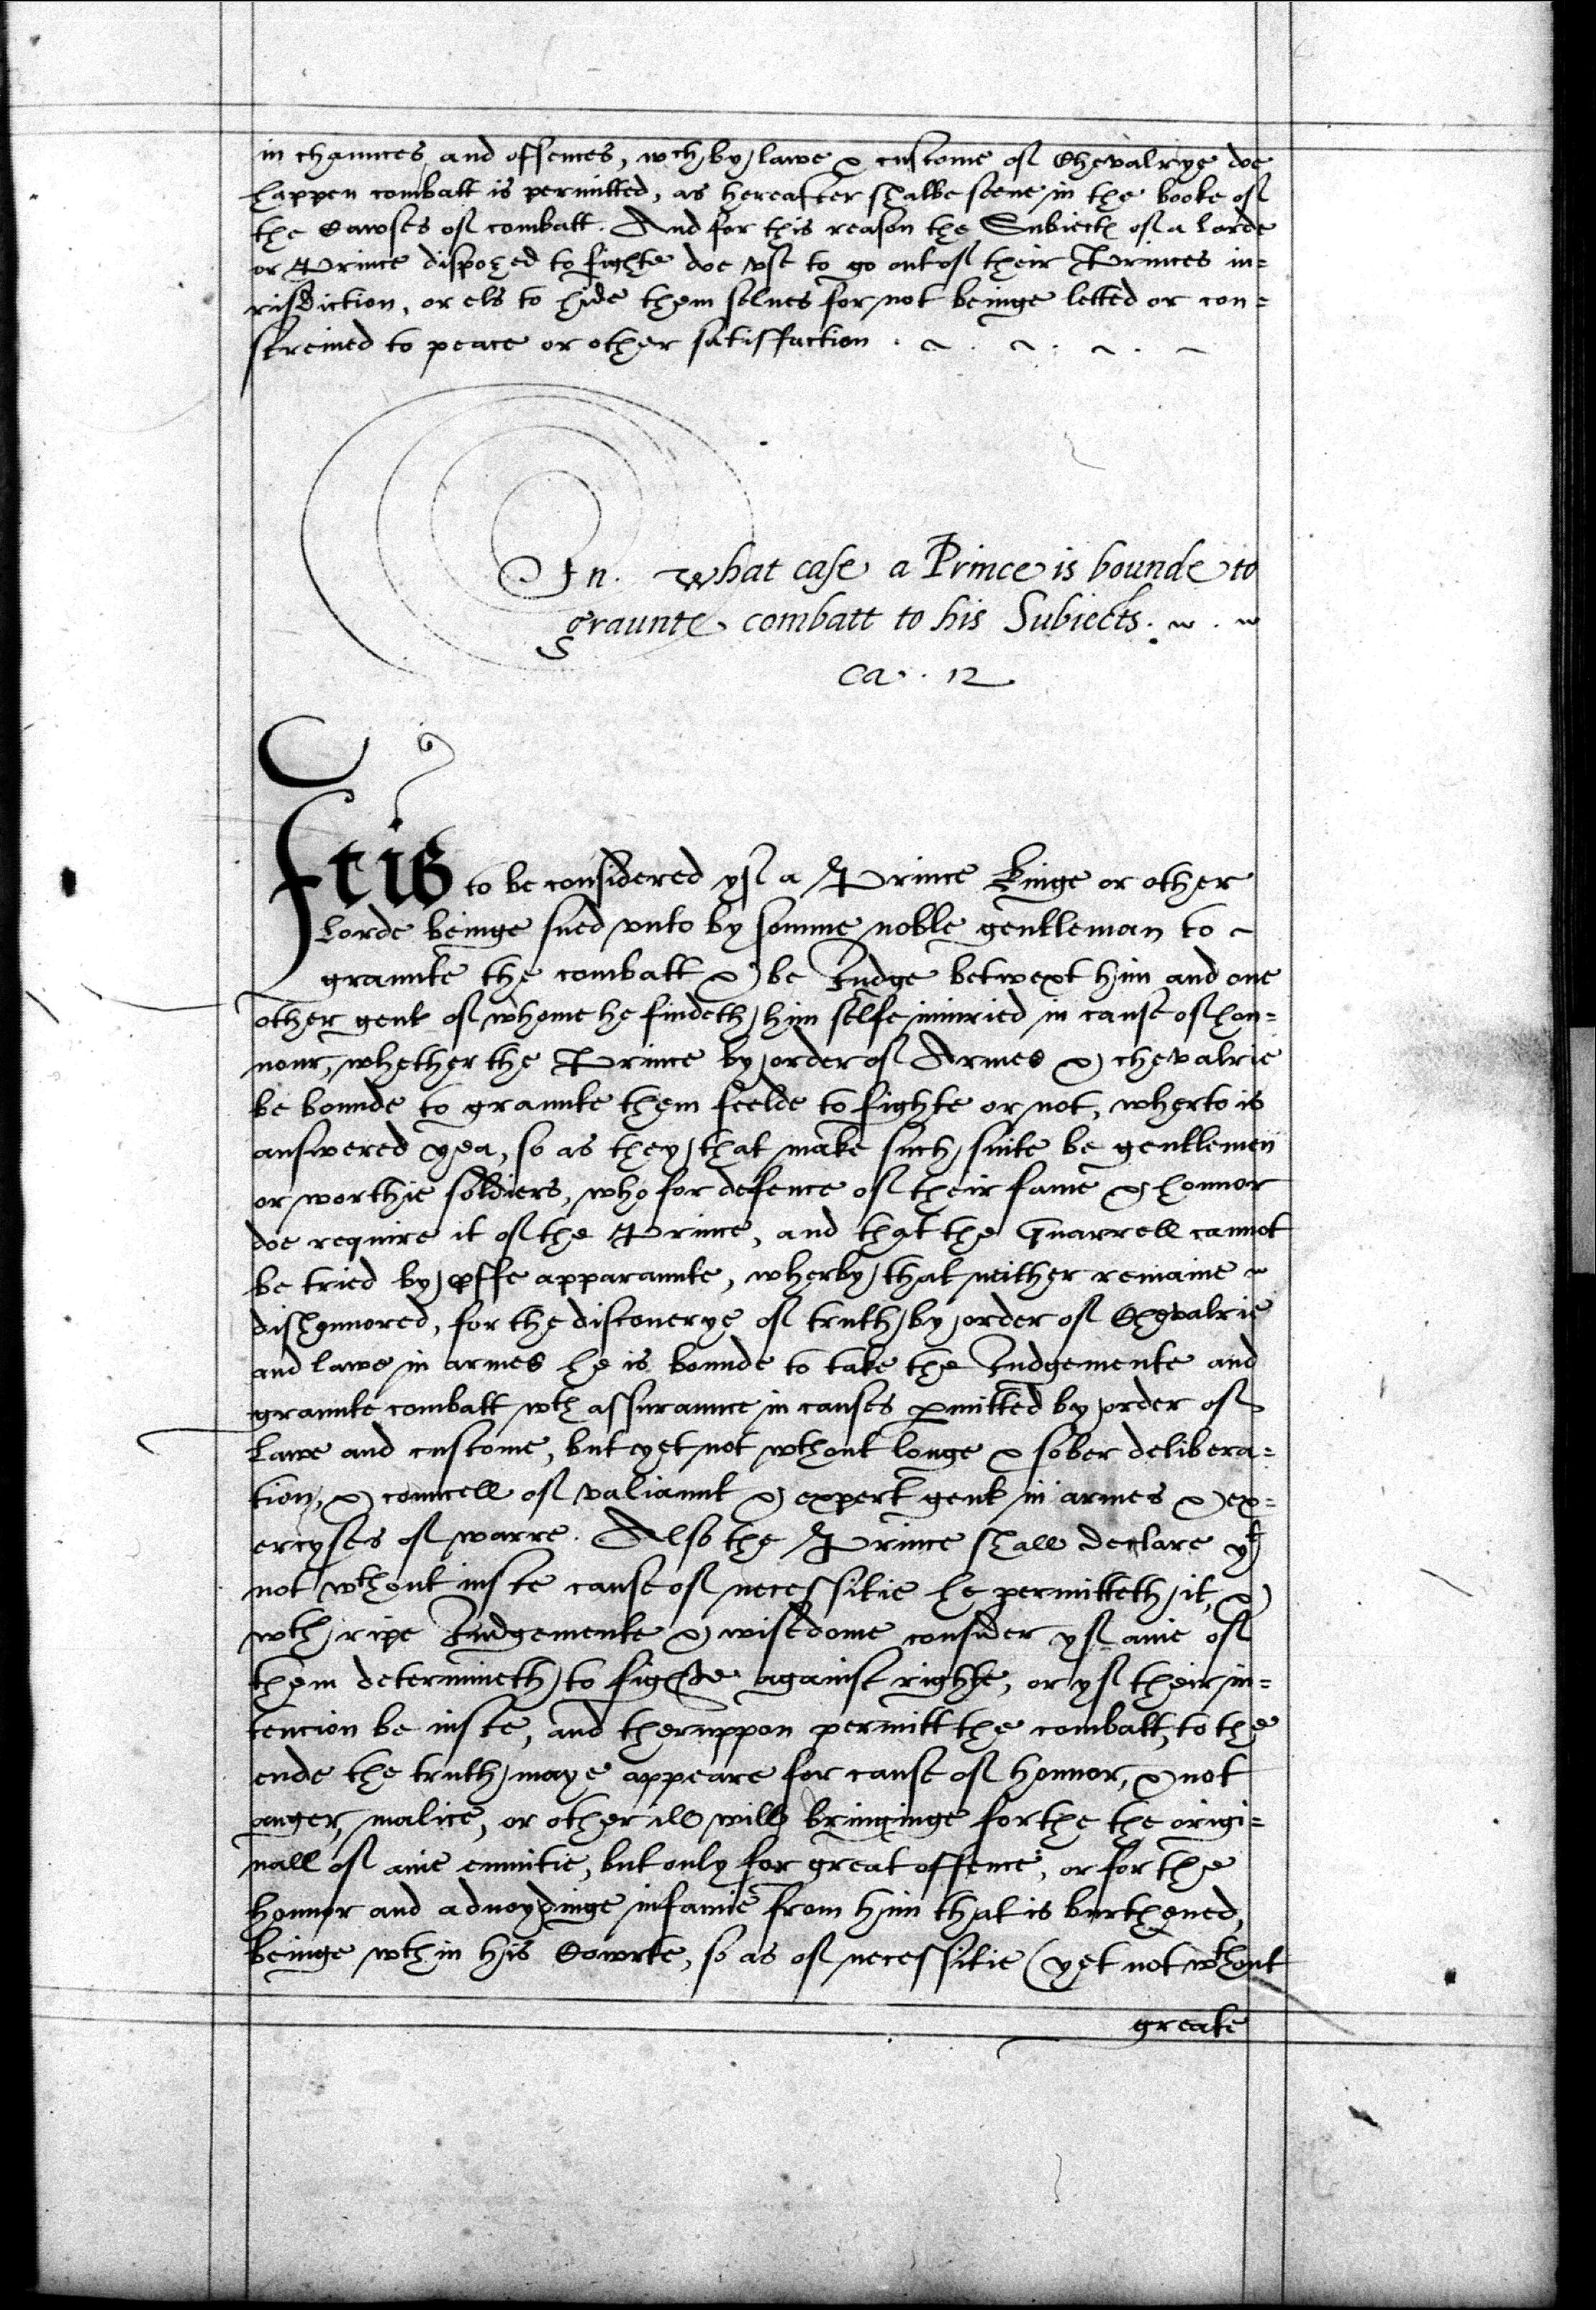 in chaunces and offences, wch by lawe & custome of Chevalrye doe
happen combatt is permitted, as hereafter shalbe seene in the booke of
the Cawses of combatt. And for this reason the Subiects of a Lorde
or Prince dispozed to fighte doe vse to go out of their Princes iu=
risdiction, or els to hide them selues for not beinge letted or con=
streined to peace or other satisffaction.
In what case a Prince is bounde to
graunte combatt to his Subiects.
Ca. 12
It is to be considered yf a Prince Kinge or other
Lorde beinge sued vnto by somme noble gentleman to
graunte the combatt & be Iudge betwext him and one
other gent of whome he findeth him selfe iniuried in cause of hon=
nour, whether the Prince by order of Armes & chevalrie
be bounde to graunte them feelde to fighte or not, wherto is
answered yea, so as they that make such suite be gentlemen
or worthie soldiers, who for defence of their fame & honnor
doe require it of the Prince, and that the Quarrell cannot
be tried by proffe apparaunte, wherby that neither remaine
dishonnored, for the discouerye of truth by order of Chevalrie
and lawe in armes he is bounde to take the Iudgemente and
graunte combatt wth assuraunce in causes permitted by order of
Lawe and custome, but yet not wthout longe & sober delibera=
tion, & councell of valiaunt & expert gent in armes & ex=
ercyses of warre. Also the Prince shall declare yt
not wthout iuste cause of necessitie he permitteth it, &
wth ripe Iudgemente & wisedome consider yf anie of
them determineth to fighte against righte, or yf their in=
tencion be iuste, and theruppon permitt the combatt, to the
ende the truth maye appeare for cause of honnor, & not
anger, malice, or other ill will bringinge forthe the origi=
nall of anie enmitie, but only for great offence, or for the
honnor and aduoydinge infamie from him that is burthened,
beinge wthin his Cowrte, so as of necessitie (yet not wthout
greate